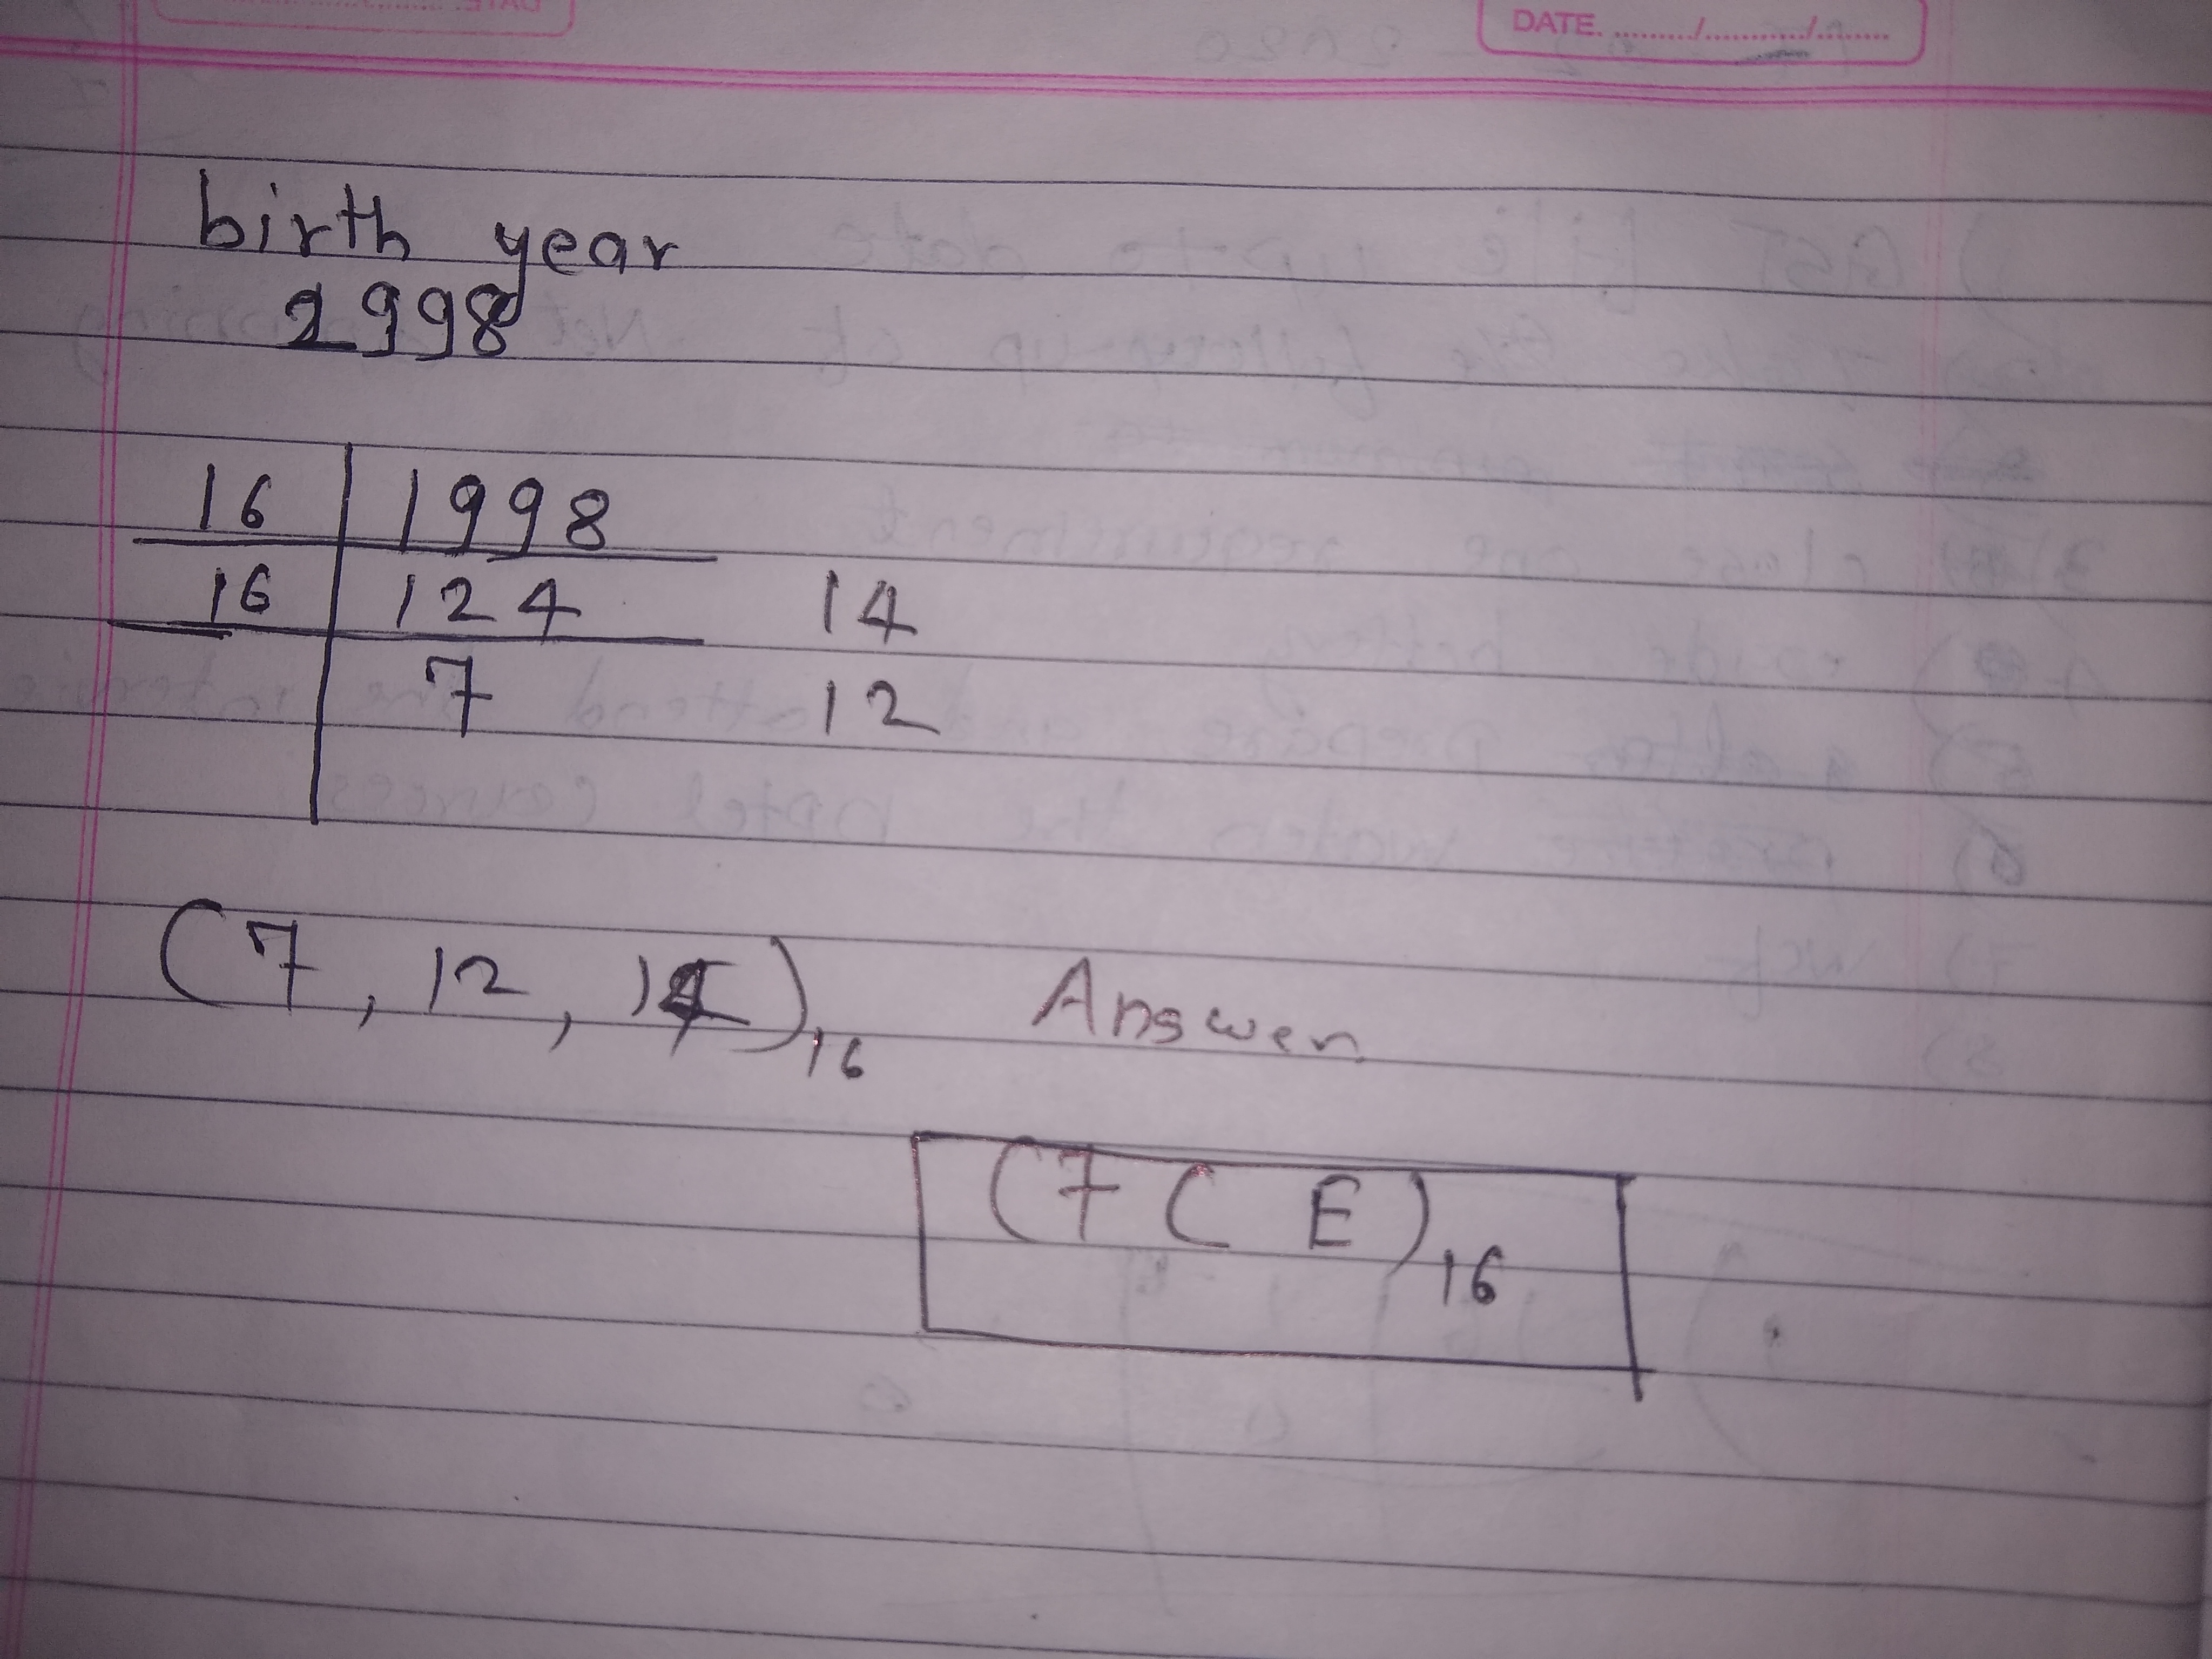 DATE. ........./.........../.........
birth year
2998
16 1998
16 124 14
7 12
(7, 12, 14)16 Answer
(7 C E)16